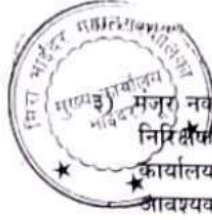 मिरा भाईंदर महानगरपालिका
मुख्य कार्यालय
भाईंदर
३) मंजूर नव
निरिक्षीक
कार्यालय
आवश्यक